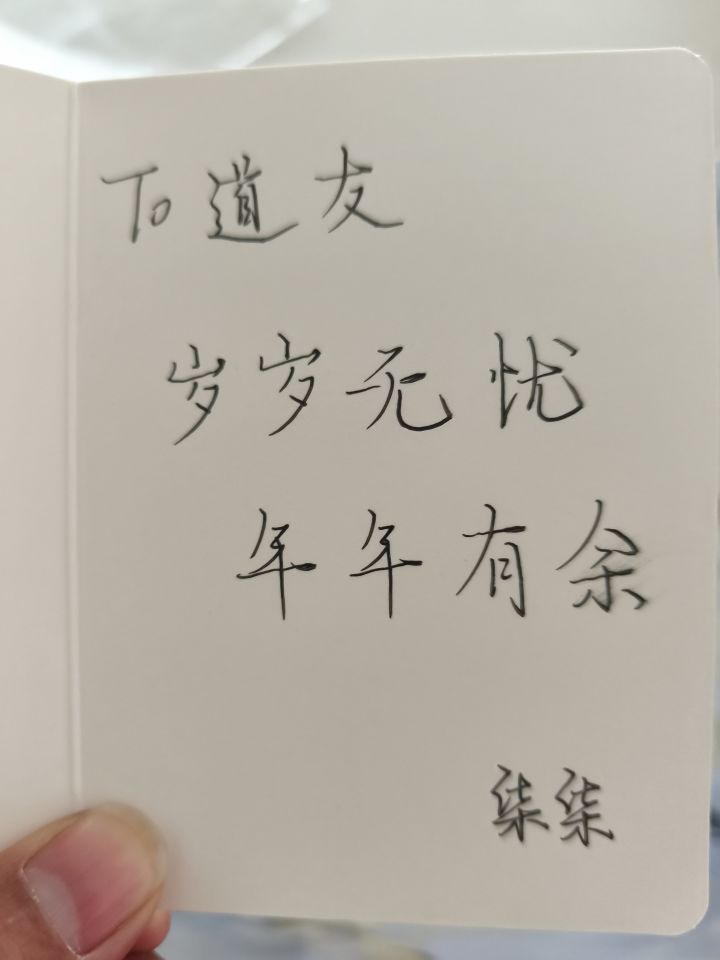 To 道友
岁岁无忧
年年有余
柒柒